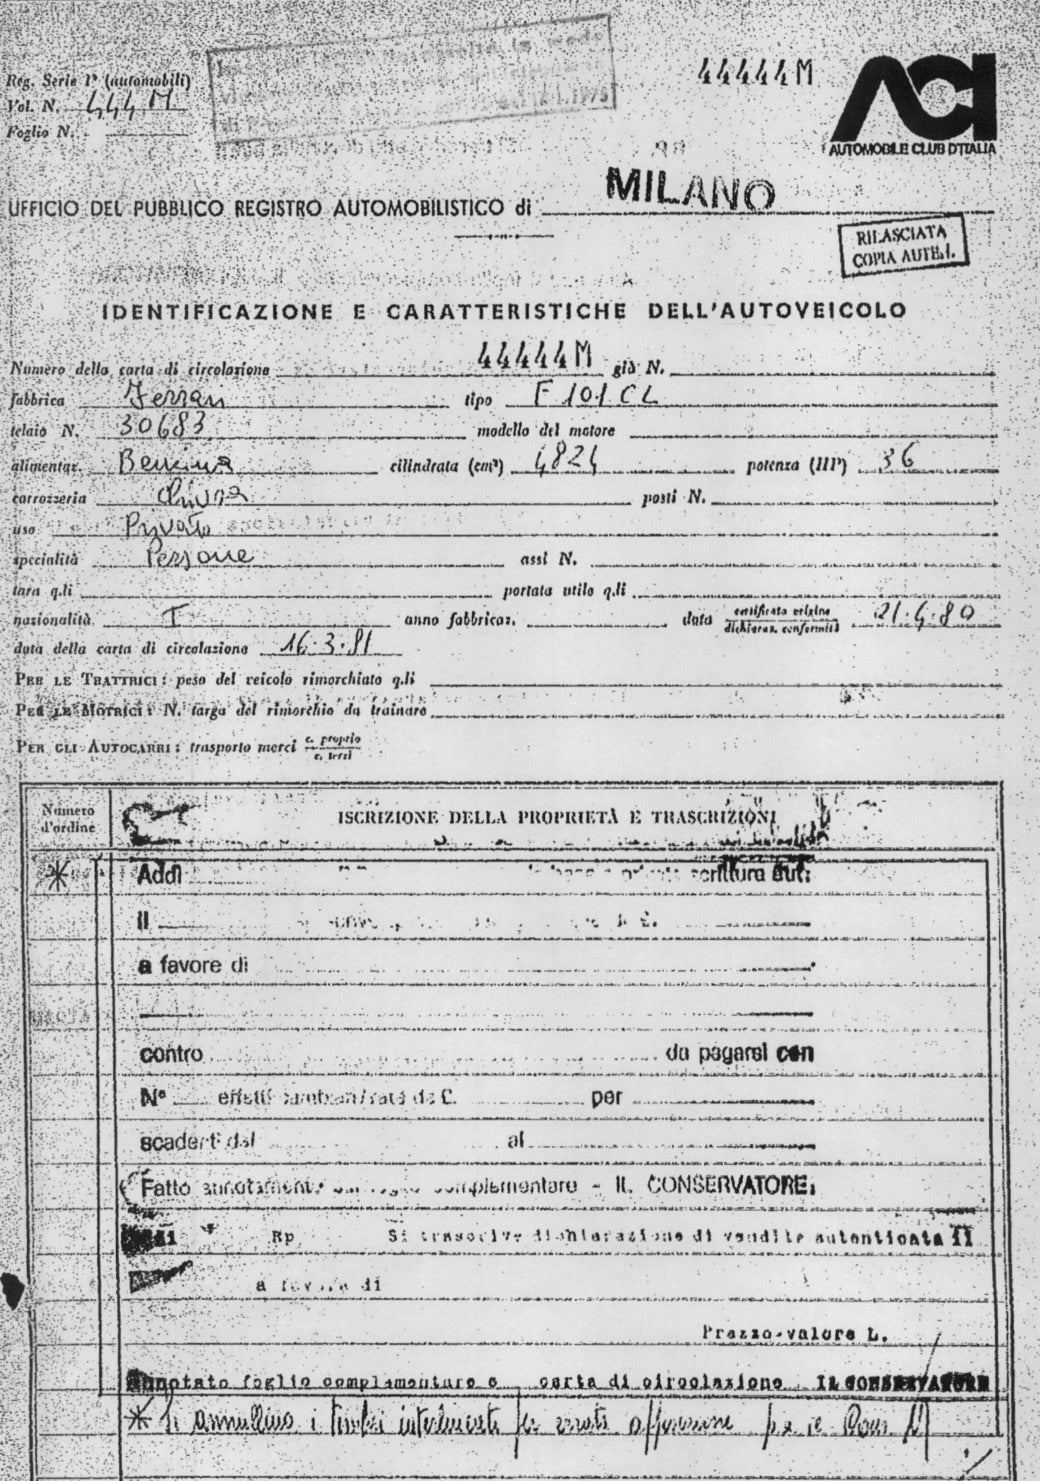 44444M
ACI
AUTOMOBILE CLUB D'ITALIA
Reg. Serie 1ª (automobili)
Vol. N. 444 M
Foglio N.
UFFICIO DEL PUBBLICO REGISTRO AUTOMOBILISTICO di MILANO
RILASCIATA
COPIA AUTE.
IDENTIFICAZIONE E CARATTERISTICHE DELL'AUTOVEICOLO
Numero della carta di circolazione 44444M già N.
fabbrica Ferrari tipo F 101 CL
telaio N. 30683 modello del motore
alimentaz. Benzina cilindrata (cm³) 4824 potenza (HP) 36
carrozzeria chiusa posti N.
uso Privato
specialità Persone assi N.
tara q.li portata utile q.li
nazionalità I anno fabbricaz. data certificato origine
dichiaraz. conformità 21.4.80
data della carta di circolazione 16.3.81
PER LE TRATTRICI: peso del veicolo rimorchiato q.li
PER LE MOTRICI: N. targa del rimorchio da trainare
PER GLI AUTOCARRI: trasporto merci c. proprio
c. terzi
Numero
d'ordine
ISCRIZIONE DELLA PROPRIETÀ E TRASCRIZIONI
* Addì scrittura aut.
il £.
a favore di
contro da pagarsi con
N° effetti cambiari/rate da £. per
scadenti dal al
Fatto annotamento sul foglio complementare - IL CONSERVATORE.
Rp Si trascrive dichiarazione di vendita autenticata il
a favore di
Prezzo-valore L.
Annotato foglio complementare e carta di circolazione IL CONSERVATORE
* Si annullano i timbri per errata apposizione